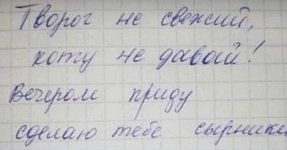 Творог не свежий,
коту не давай!
Вечером приду
сделаю тебе сырники